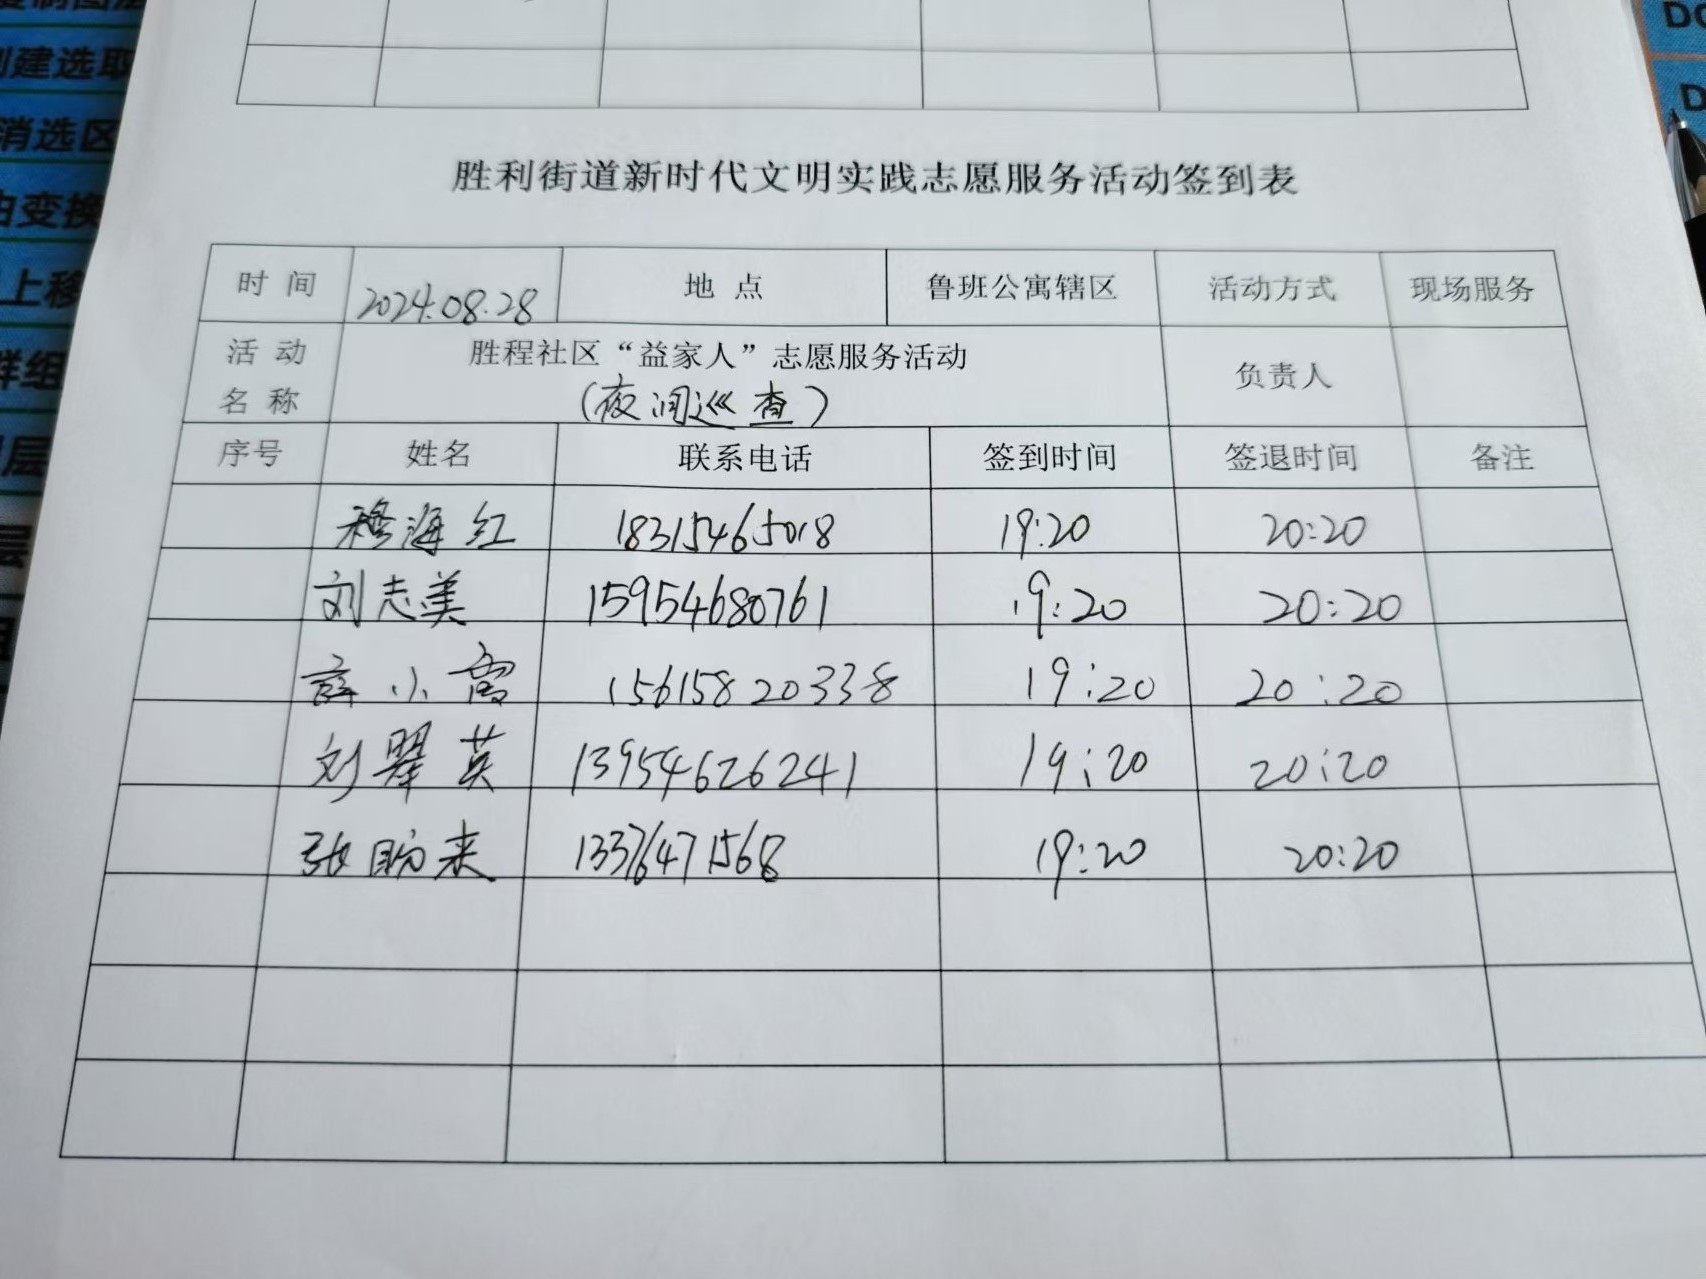 建选取
消选区
由变换
上移
群组
层
层
胜利街道新时代文明实践志愿服务活动签到表
时 间 2024.08.28 地 点 鲁班公寓辖区 活动方式 现场服务
活 动
名 称
胜程社区“益家人”志愿服务活动
(夜间巡查)
负责人
序号 姓名 联系电话 签到时间 签退时间 备注
穆海红 18315465018 19:20 20:20
刘志美 15954680761 19:20 20:20
薛小霞 15615820338 19:20 20:20
刘翠英 13954626241 19:20 20:20
张盼来 13376471568 19:20 20:20